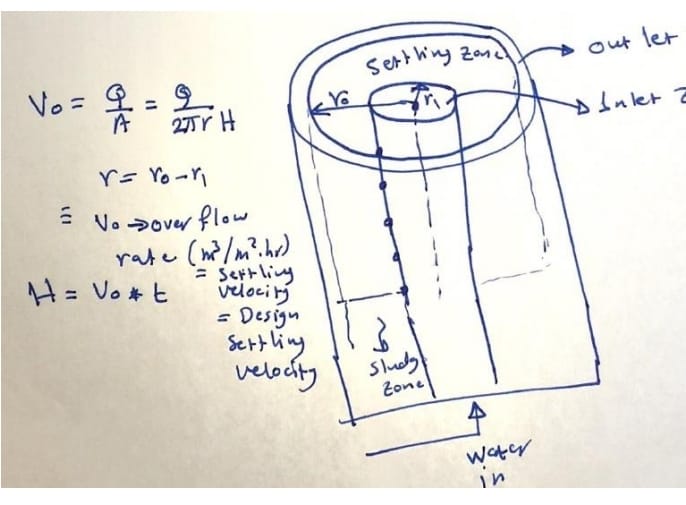 Vo = Q/A = Q/2πr H
r = ro - r1
≡ Vo → over flow
rate (m³/m².hr)
= settling
velocity
= Design
settling
velocity
H = Vo * t
Settling zone
out let
ro
r1
Inlet Z
Sludg
zone
water
in